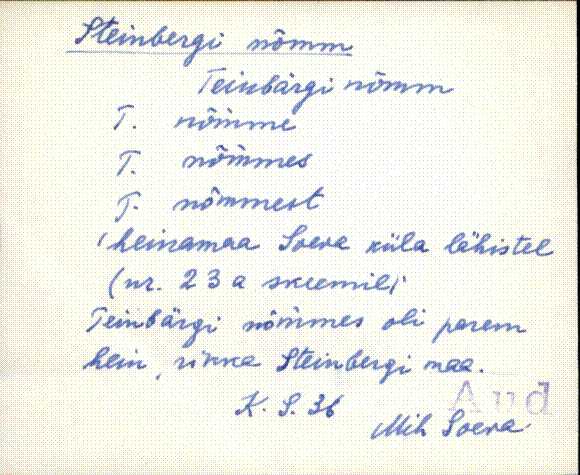 Steinbergi nõmm
Teinbärgi nõmm
T. nõmme
T. nõmmes
T. nõmmest
(heinamaa Soeva küla lähistel
(nr. 23a skeemil)
Teinbärgi nõmmes oli parem
hein, rikka Steinbergi maa.
K. S. 36
Aud
Mih Soeva